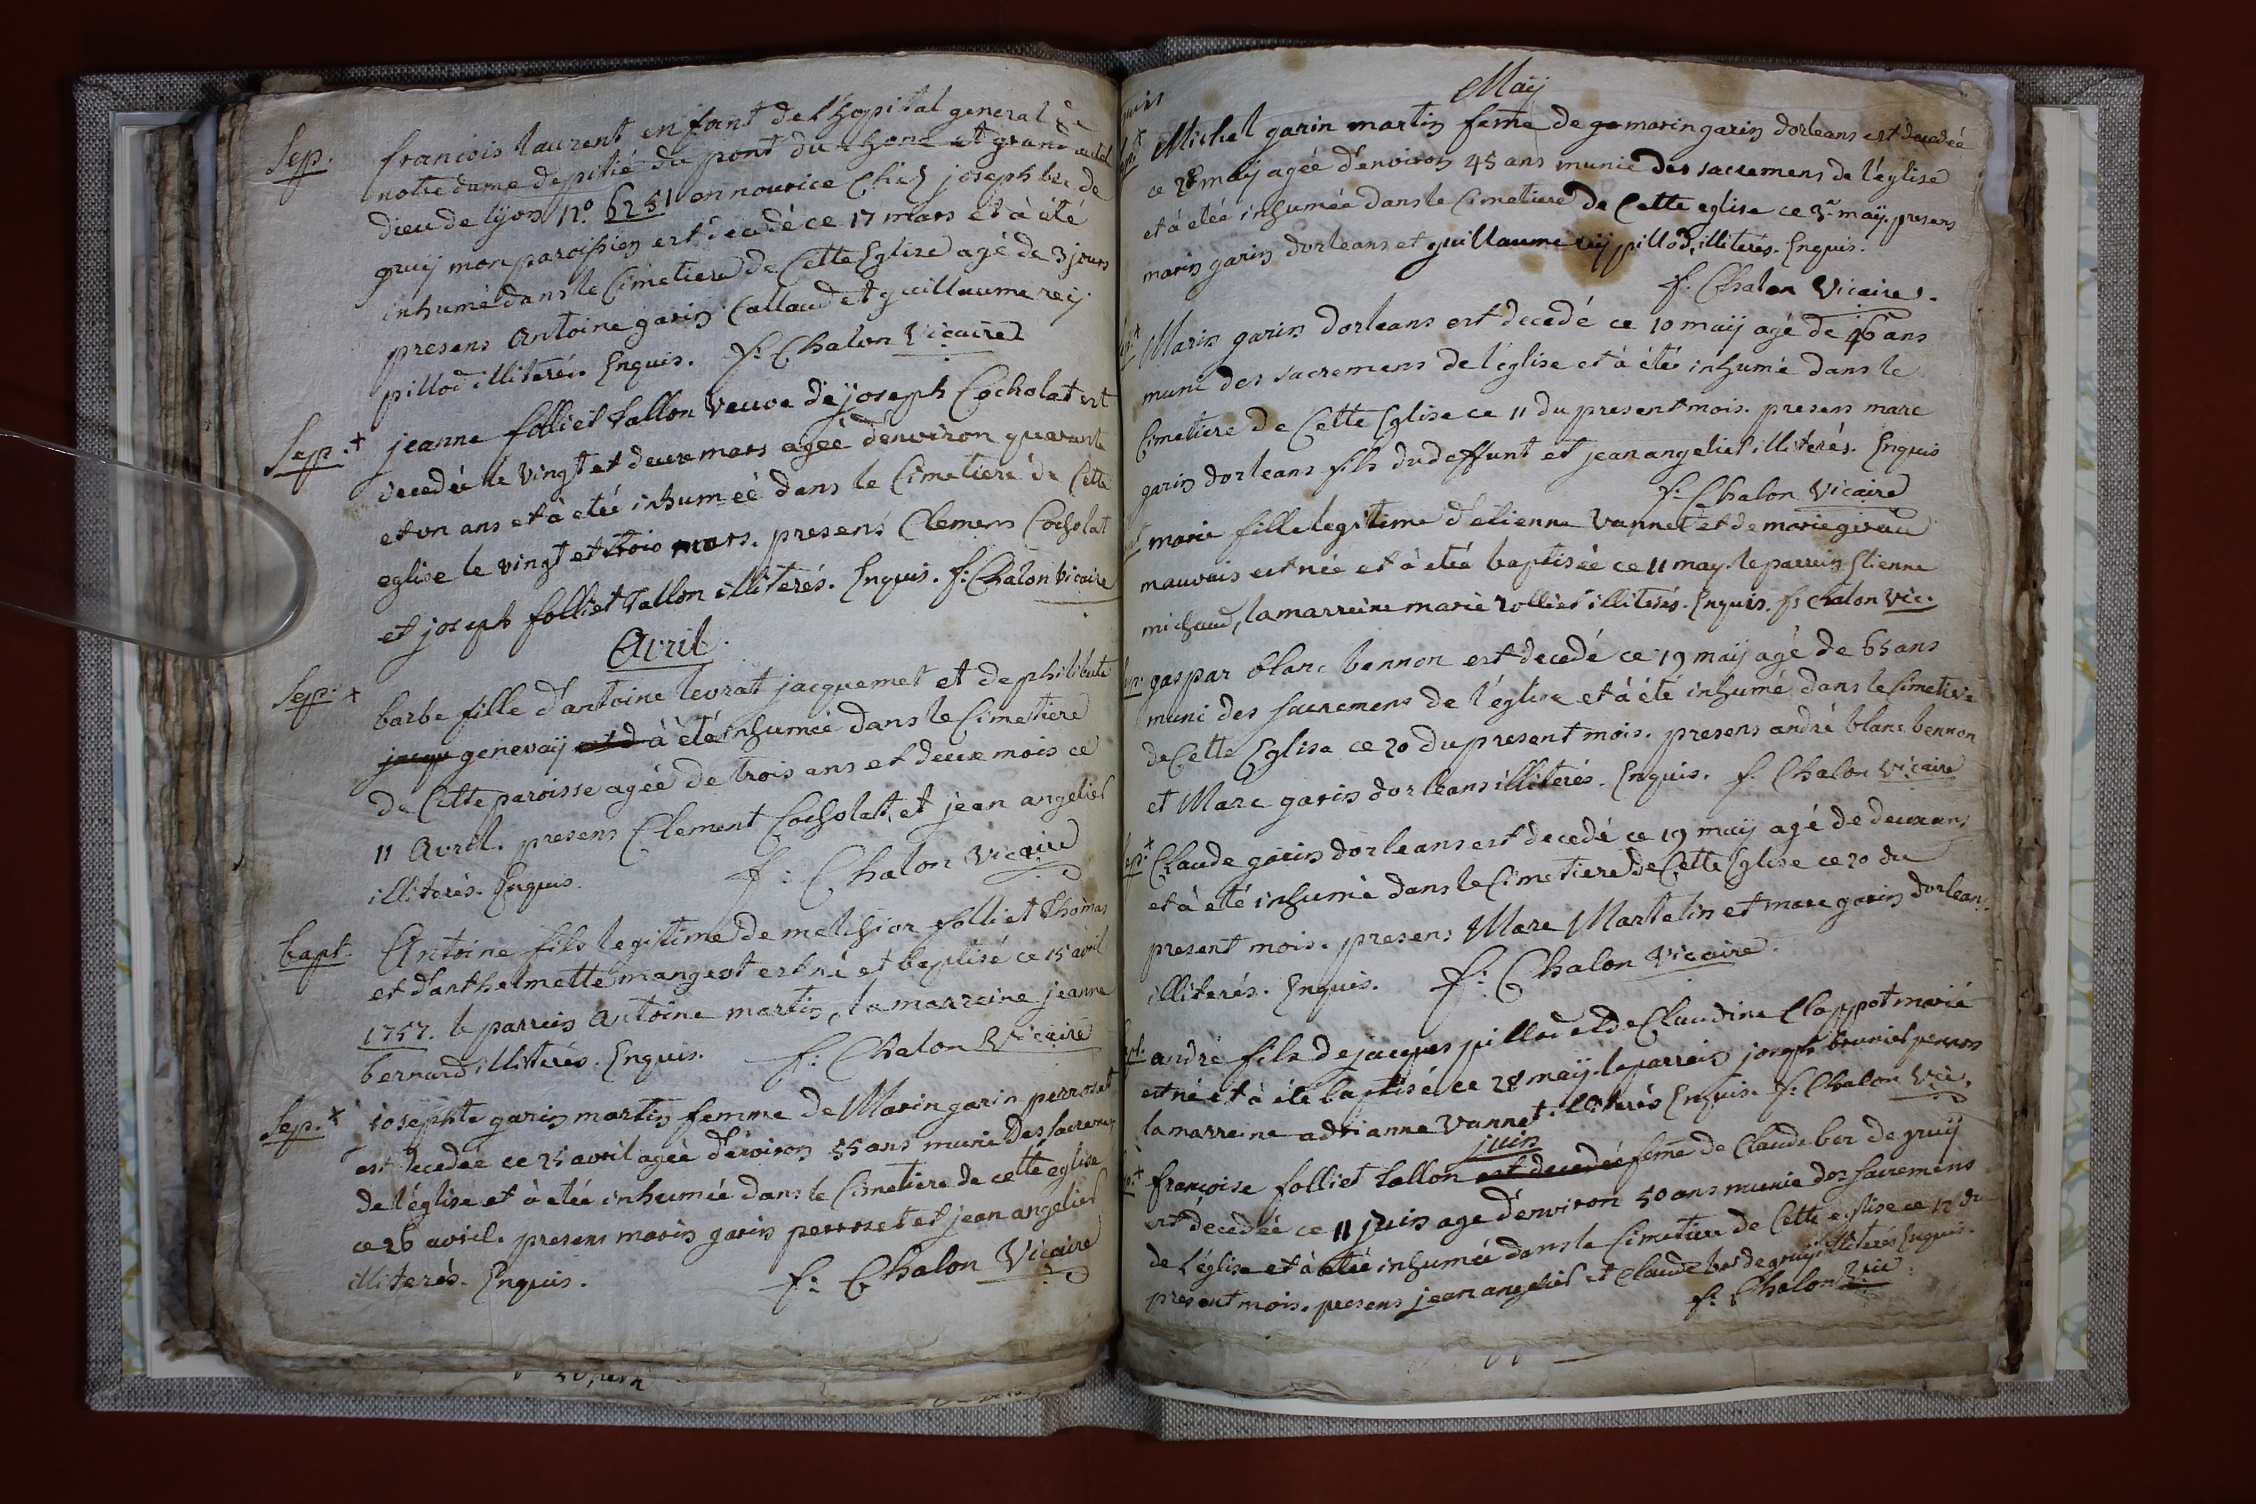 Sep. francois laurent enfant de l'hopital general de
notre dame de pitié du pont du rhone et grand autel
dieu de lyon n.° 6251 en nourice chez joseph ber de
gruij mon paroissien est decedé ce 17 mars et à été
inhumé dans le Cimetiere de Cette Eglise agé de 3 jours
presens antoine garin Callaud et guillaume reij
pillod illiterés. Enquis. f: Chalon Vicaire
Sep. + jeanne folliet tallon veuve de joseph Cocholat est
decedée le vingt et deux mars agée d'environ quarante
et un ans et à eté inhumeé dans le Cimetiere de Cette
eglise le vingt et trois mars. presens Clemens Cocholat
et joseph folliet tallon illiterés. Enquis. f: Chalon Vicaire
Avril.
Sep. + barbe fille d'antoine levrat jacquemet et de philiberte
jacqu genevaij est d à été inhumée dans le Cimetiere
de Cette paroisse agée de trois ans et deux mois ce
11 Avril. presens Clement Cocholat, et jean angeliet
illiterés. Enquis. f: Chalon Vicaire
bapt. Antoine fils legitime de melchior folliet thomas
et d'anthelmette mangeot est né et baptisé ce 15 avril
1757. le parrein Antoine martin, la marreine jeanne
bernard illiterés. Enquis. f: Chalon Vicaire
Sep. + josephte garin martin femme de Marin garin perroset
est decedée ce 25 avril agée d'environ 55 ans munie des sacremens
de l'église et à etée inhumée dans le Cimetiere de cette eglise
ce 26 avril. presens marin garin perroset et jean angeliet
illiterés. Enquis. f: Chalon Vicaire
Maij
Michel garin martin feme de ga marin garin dorleans est decedée
ce 2e maij agée d'environ 45 ans munie des sacremens de l'église
et à etée inhumée dans le Cimetiere de Cette eglise ce 3e maij. presens
marin garin dorleans et guillaume reij pillod, illiterés. Enquis.
f: Chalon Vicaire.
Marin garin dorleans est decedé ce 10 maij agé de 46 ans
muni des sacremens de l'église et à été inhumé dans le
Cimetiere de Cette Eglise ce 11 du present mois. presens marc
garin dorleans fils du deffunt et jean angeliet illiterés. Enquis
f: Chalon Vicaire
marie fille legitime d'etienne vannet et de marie giraud
mauvais est née et à eté baptisée ce 11 may. le parrein Etienne
michaud, la marreine marie rolliet illiterés. Enquis. f: Chalon Vic.
gaspar blanc bennon est decedé ce 19 maij agé de 65 ans
muni des sacremens de l'église et à été inhumé dans le Cimetiere
de Cette Eglise ce 20 du present mois. presens andré blanc bennon
et Marc garin dorleans illiterés. Enquis. f: Chalon Vicaire
+ Claude garin dorleans est decedé ce 19 maij agé de deux ans
et à été inhumé dans le Cimetiere de Cette Eglise ce 20 du
present mois. presens Marc Martelin et marc garin dorleans
illiterés. Enquis. f: Chalon Vicaire.
andré fils de jacques pillod et de Claudine Clappot marié
est né et à été baptisé ce 28 maij. le parrein joseph brunict perron
la marreine adrianne vannet illiterés Enquis. f: Chalon Vic.
juin
francoise folliet tallon est decedée feme de Claude ber de gruij
est decedée ce 11 juin age d'environ 50 ans munie des sacremens
de l'église et à eteé inhumée dans le Cimetiere de Cette eglise ce 12 du
present mois. presens jean angeliet et Claude ber de gruij illiterés Enquis.
f: Chalon Vic